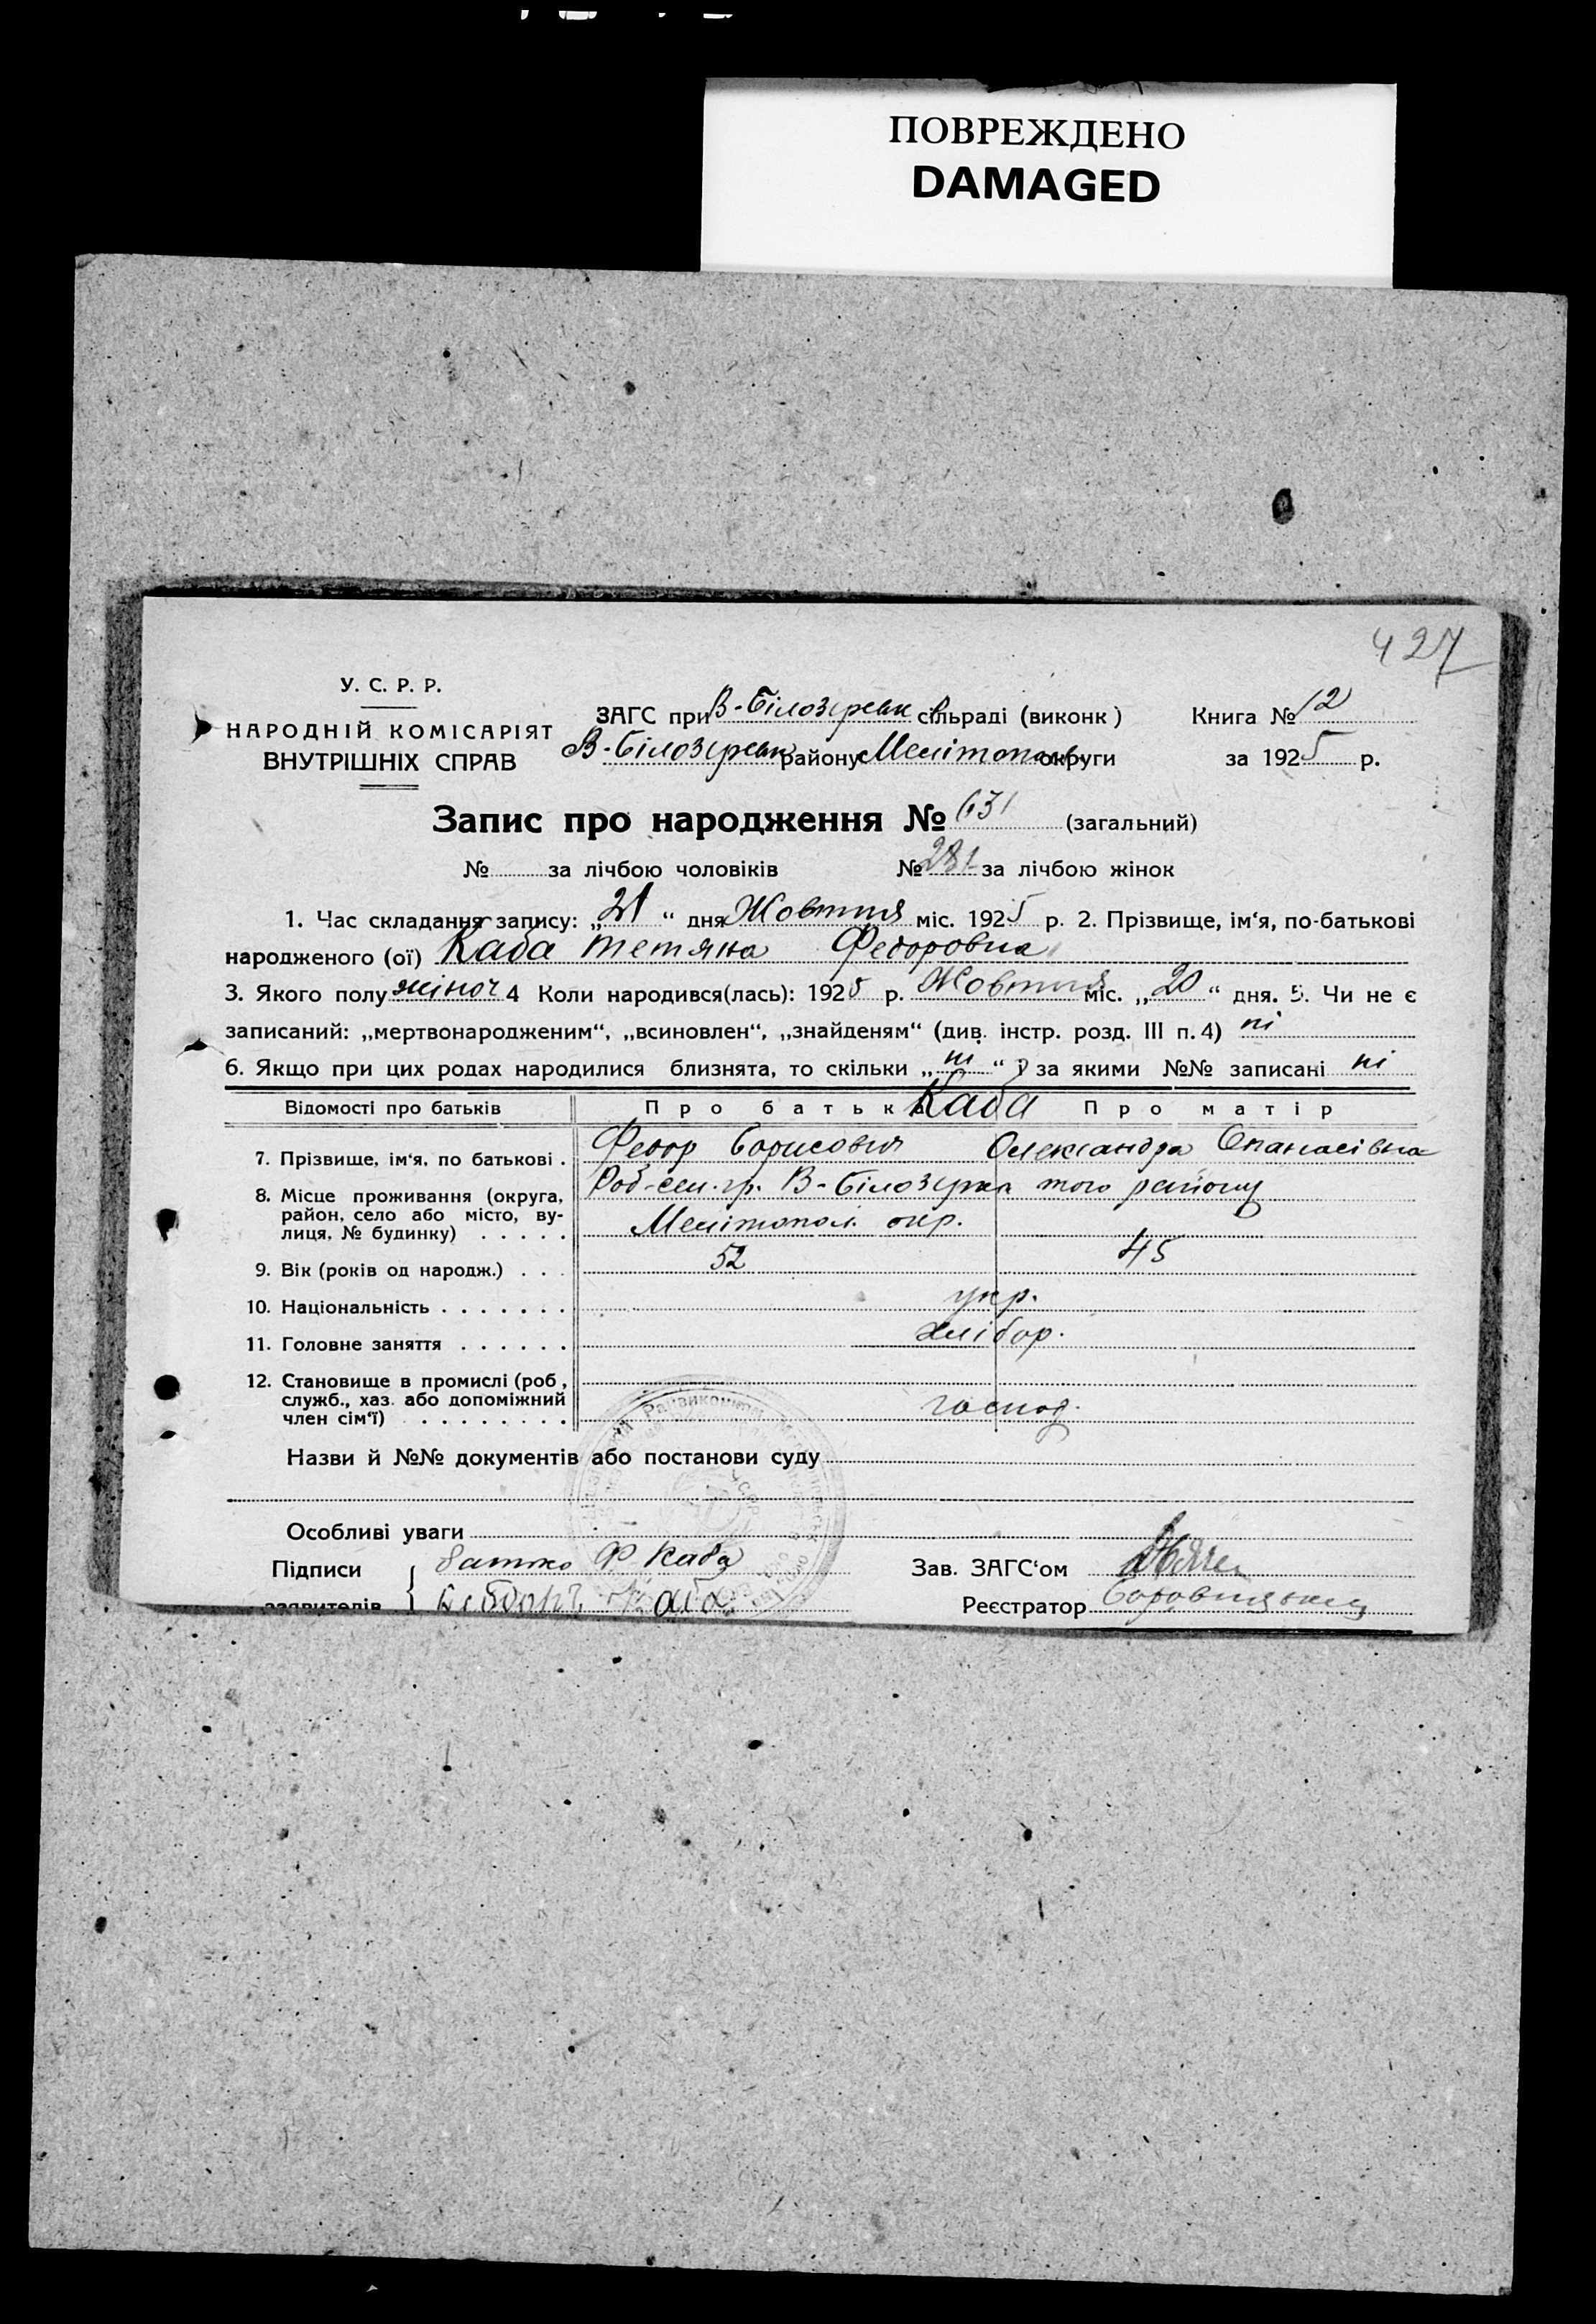 ПОВРЕЖДЕНО
DAMAGED
427
У. С. Р. Р.
НАРОДНІЙ КОМІСАРІЯТ
ВНУТРІШНІХ СПРАВ
ЗАГС при В-Білозерськ сільраді (виконк)
В-Білозерськ району Мелітопол округи
Книга № 12
за 1925 р.
Запис про народження № 631 (загальний)
№ за лічбою чоловіків № 281 за лічбою жінок
1. Час складання запису: „21“ дня Жовтня міс. 1925 р. 2. Прізвище, ім‘я, по-батькові
народженого (ої) Каба Тетяна Федоровна
3. Якого полу жіноч 4 Коли народився(лась): 1925 р. Жовтня міс. „20“ дня. 5. Чи не є
записаний: „мертвонародженим“, „всиновлен“, „знайденям“ (див. інстр. розд. III п. 4) ні
6. Якщо при цих родах народилися близнята, то скільки „ні“ і за якими №№ записані ні
Відомості про батьків Про батька Каба Про матір
7. Прізвище, ім‘я, по батькові . Федор Борисович Олександра Опанасівна
8. Місце проживання (округа, район, село або місто, вулиця, № будинку) . . . . . В-Білозерка того району
Мелітопол. окр.
9. Вік (років од народж.) . . . 52 45
10. Національність . . . . . . . укр.
11. Головне заняття . . . . . . хлібор.
12. Становище в промислі (роб, служб., хаз. або допоміжний член сім‘ї) . . . . . . . . господ.
Назви й №№ документів або постанови суду
Особливі уваги
Підписи батько Ф Каба
заявителів Каба
Зав. ЗАГС‘ом
Реєстратор